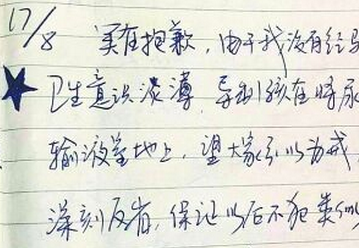 17/8 实在抱歉，由于我没有经
卫生意识淡薄，导致孩在将尿
输液室地上，望大家引以为戒
深刻反省，保证以后不犯类似